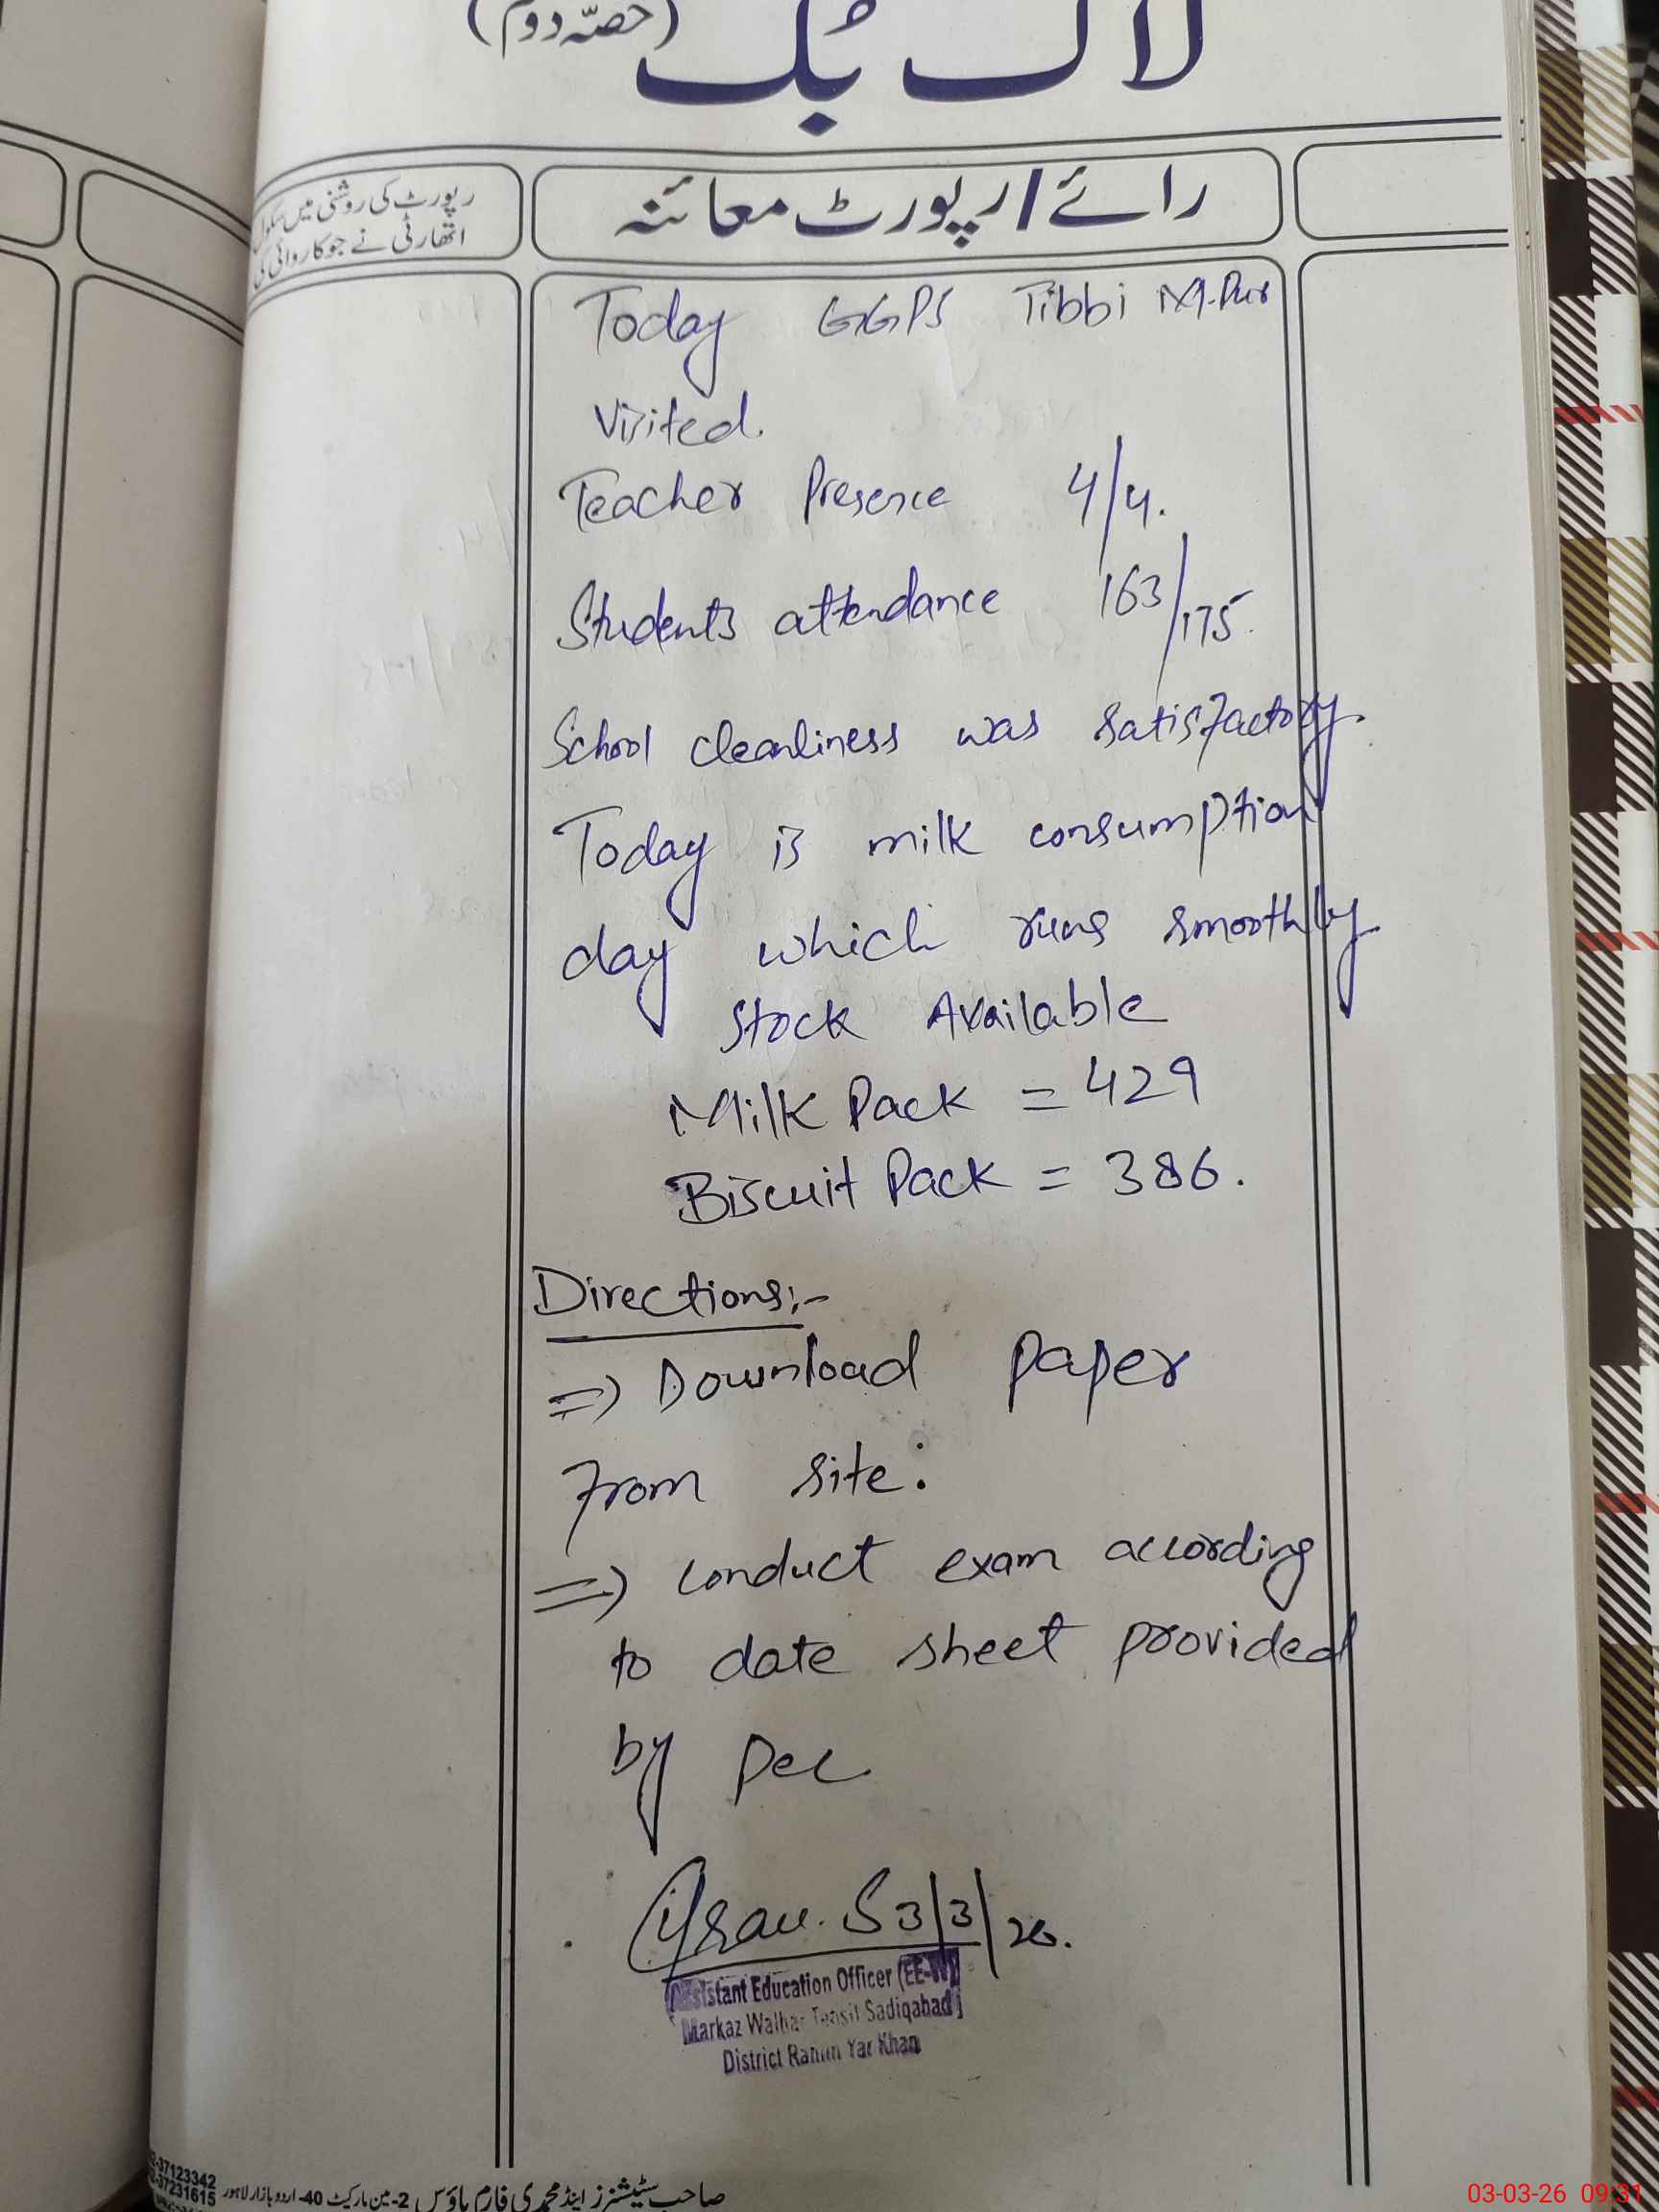 لاگ بُک (حصّہ دوم)
رائے/رپورٹ معائنہ
رپورٹ کی روشنی میں سکول
اتھارٹی نے جو کاروائی کی
Today GGPS Tibbi M.Pur
Visited.
Teacher Presence 4/4.
Students attendance 163/175.
School cleanliness was satisfactory.
Today is milk consumption
day which runs smoothly
Stock Available
Milk Pack = 429
Biscuit Pack = 386.
Directions:-
=> Download paper
from site:
=> conduct exam according
to date sheet provided
by Pec
3/3/26.
Assistant Education Officer (EE-W)
Markaz Walhar Tehsil Sadiqabad
District Rahim Yar Khan
37123342
37231615
صاحب سٹیشنرز اینڈ محمدی فارم ہاؤس 2-مین مارکیٹ 40-اردو بازار لاہور
03-03-26 09:31